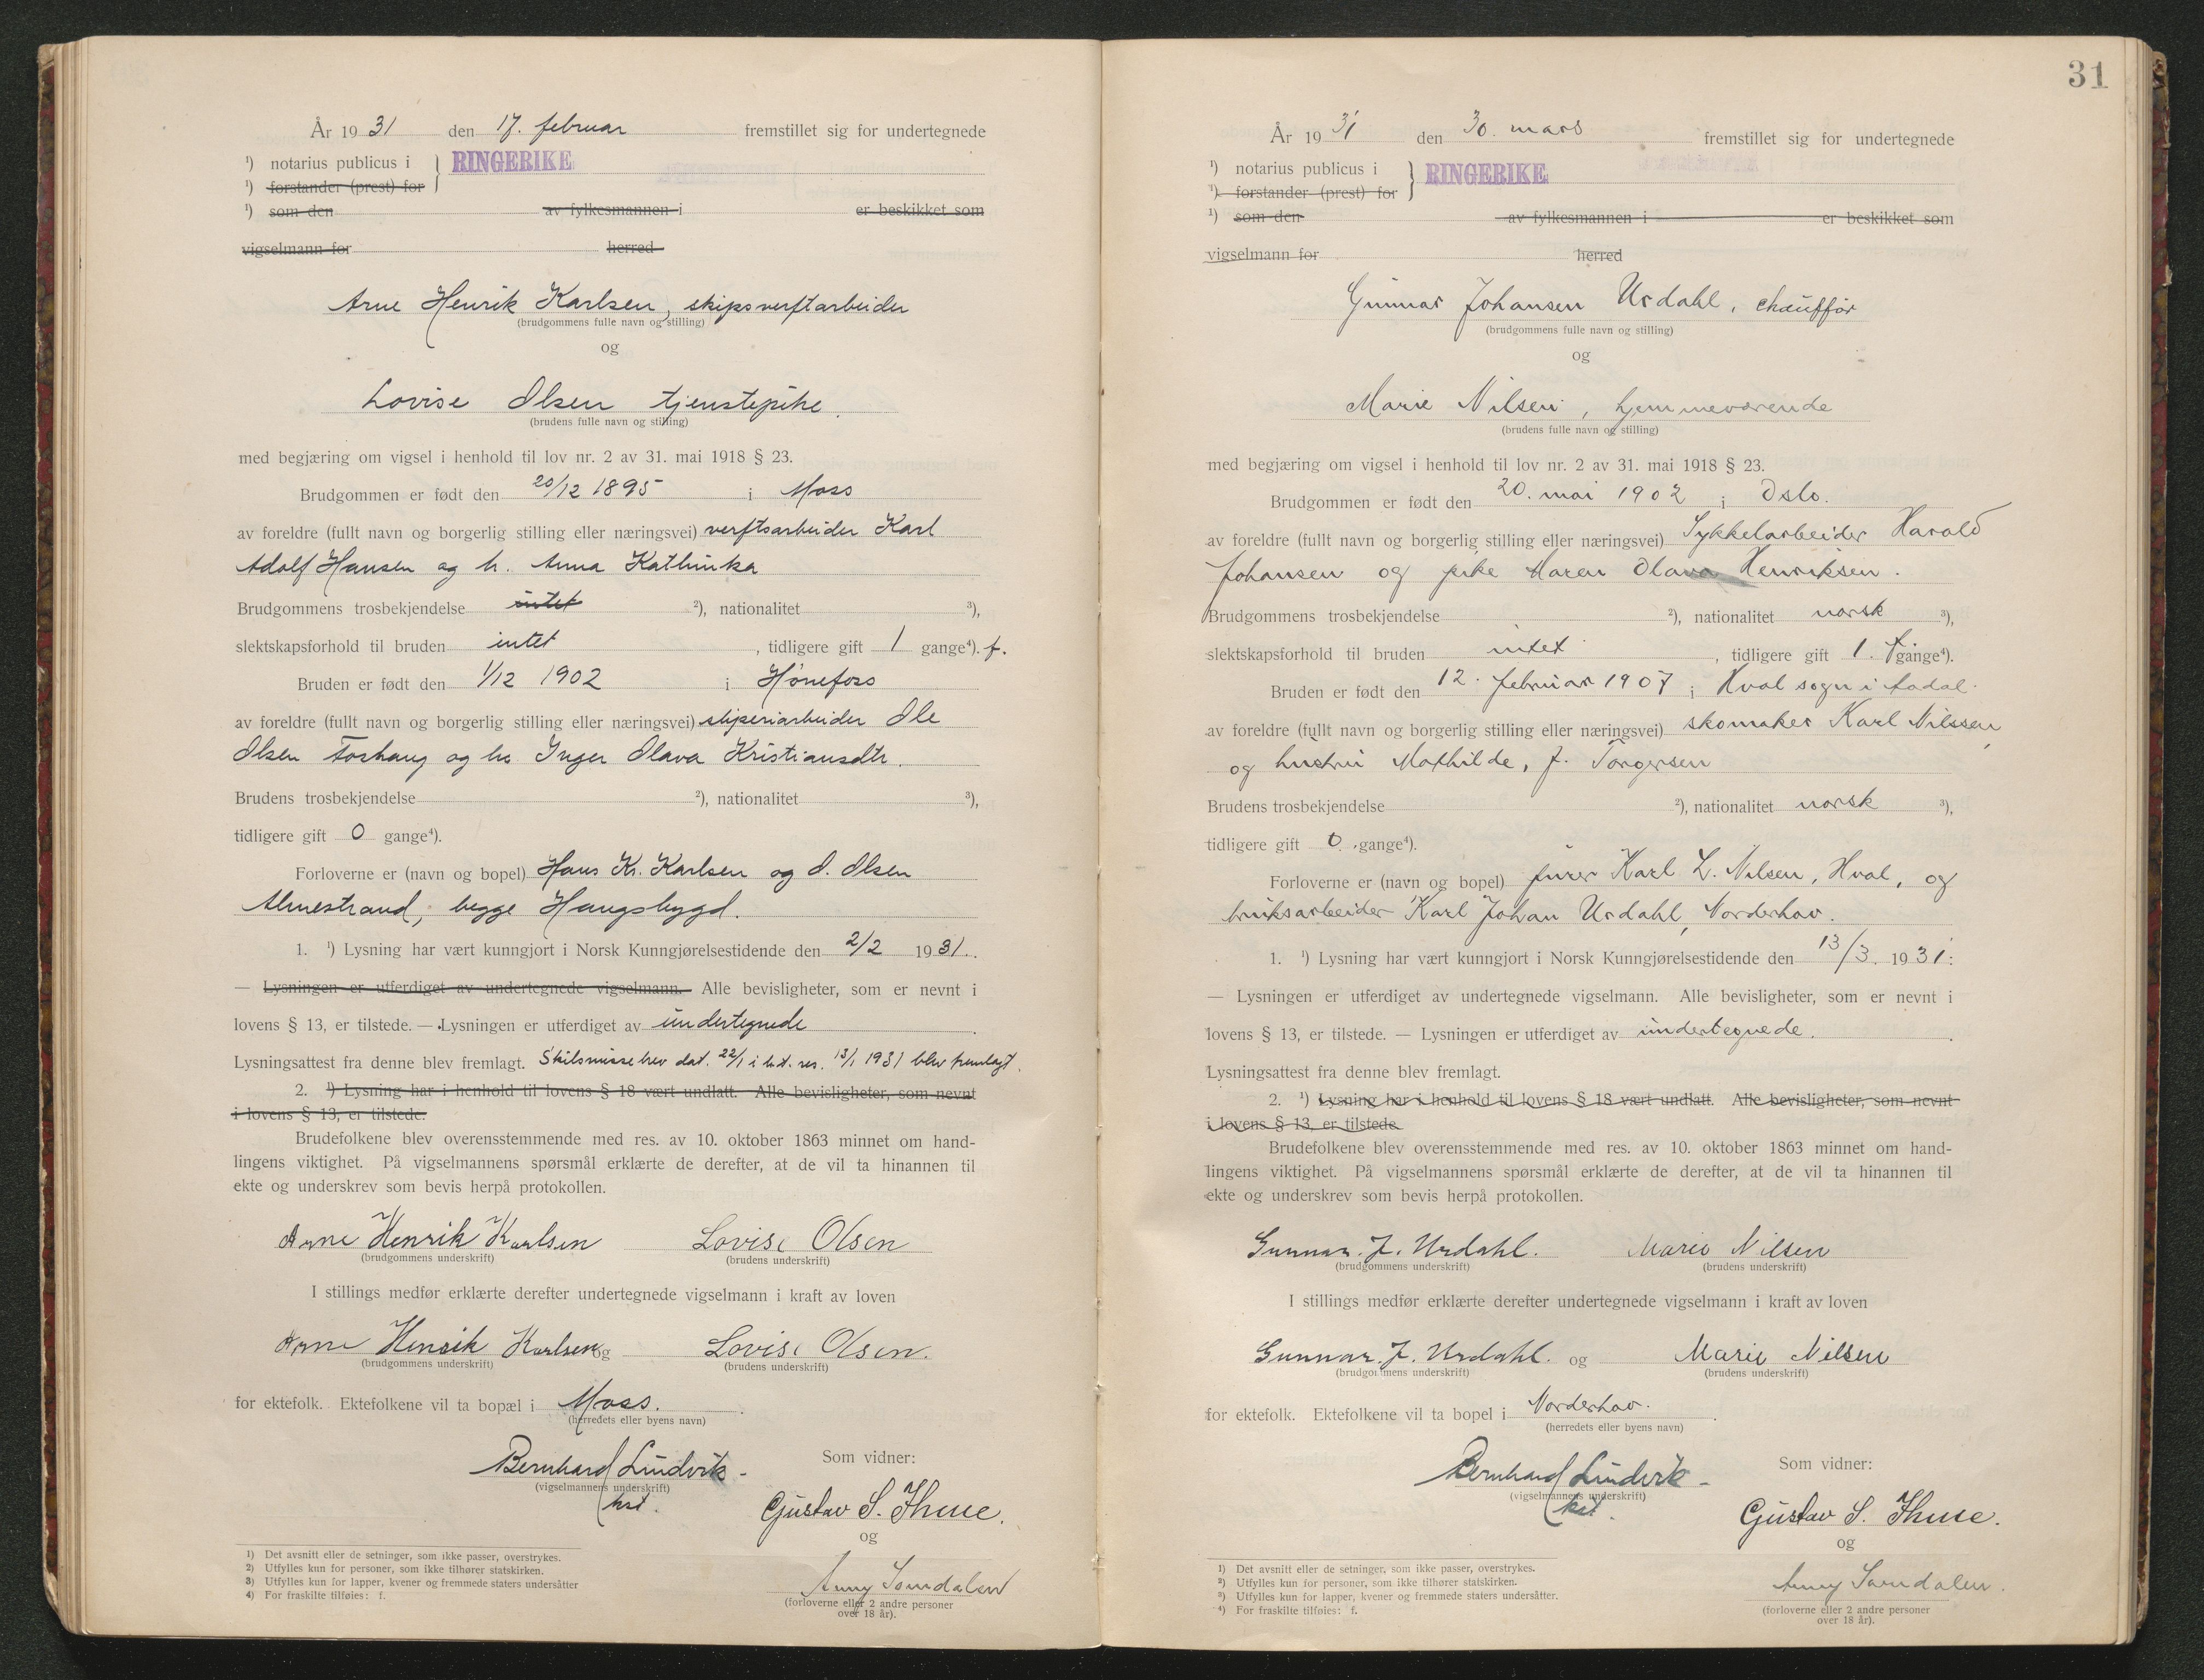 År 1931 den 17. februar fremstillet sig for undertegnede
¹) notarius publicus i } RINGERIKE
¹) forstander (prest) for
¹) som den av fylkesmannen i er beskikket som
vigselmann for herred
Arne Henrik Karlsen, skipsverftarbeider
(brudgommens fulle navn og stilling)
og
Lovise Olsen tjenstepike.
(brudens fulle navn og stilling)
med begjæring om vigsel i henhold til lov nr. 2 av 31. mai 1918 § 23.
Brudgommen er født den 20/12 1895 i Moss
av foreldre (fullt navn og borgerlig stilling eller næringsvei) verftsarbeider Karl
Adolf Hansen og h. Anna Kathinka
Brudgommens trosbekjendelse intet ²), nationalitet ³),
slektskapsforhold til bruden intet, tidligere gift 1 gange⁴). f.
Bruden er født den 1/12 1902 i Hønefoss
av foreldre (fullt navn og borgerlig stilling eller næringsvei) sliperiarbeider Ole
Olsen Foshaug og h. Inger Olava Kristiansdtr.
Brudens trosbekjendelse ²), nationalitet ³),
tidligere gift 0 gange⁴).
Forloverne er (navn og bopel) Hans Kr. Karlsen og O. Olsen
Almestrand, begge Haugsbygd.
1. ¹) Lysning har vært kunngjort i Norsk Kunngjørelsestidende den 2/2 1931.
— Lysningen er utferdiget av undertegnede vigselmann. Alle bevisligheter, som er nevnt i
lovens § 13, er tilstede. — Lysningen er utferdiget av undertegnede.
Lysningsattest fra denne blev fremlagt. Skilsmissebrev dat. 22/1 i h.t. res. 13/1 1931 blev fremlagt.
2. ¹) Lysning har i henhold til lovens § 18 vært undlatt. Alle bevisligheter, som nevnt
i lovens § 13, er tilstede.
Brudefolkene blev overensstemmende med res. av 10. oktober 1863 minnet om hand-
lingens viktighet. På vigselmannens spørsmål erklærte de derefter, at de vil ta hinannen til
ekte og underskrev som bevis herpå protokollen.
Arne Henrik Karlsen Lovise Olsen
(brudgommens underskrift) (brudens underskrift)
I stillings medfør erklærte derefter undertegnede vigselmann i kraft av loven
Arne Henrik Karlsen og Lovise Olsen.
(brudgommens underskrift) (brudens underskrift)
for ektefolk. Ektefolkene vil ta bopæl i Moss.
(herredets eller byens navn)
Bernhard Lindvik
(vigselmannens underskrift)
kst.
Som vidner:
Gustav S. Thuse.
og
Anny Somdalen
(forloverne eller 2 andre personer
over 18 år).
1) Det avsnitt eller de setninger, som ikke passer, overstrykes.
2) Utfylles kun for personer, som ikke tilhører statskirken.
3) Utfylles kun for lapper, kvener og fremmede staters undersåtter
4) For fraskilte tilføies: f.
31
År 1931 den 30. mars fremstillet sig for undertegnede
¹) notarius publicus i } RINGERIKE
¹) forstander (prest) for
¹) som den av fylkesmannen i er beskikket som
vigselmann for herred
Gunnar Johansen Urdahl, chauffør
(brudgommens fulle navn og stilling)
og
Marie Nilsen, hjemmeværende
(brudens fulle navn og stilling)
med begjæring om vigsel i henhold til lov nr. 2 av 31. mai 1918 § 23.
Brudgommen er født den 20. mai 1902 i Oslo.
av foreldre (fullt navn og borgerlig stilling eller næringsvei) Sykkelarbeider Harald
Johansen og pike Maren Olava Henriksen.
Brudgommens trosbekjendelse ²), nationalitet norsk ³),
slektskapsforhold til bruden intet, tidligere gift 1. f gange⁴).
Bruden er født den 12. februar 1907 i Hval sogn i Aadal.
av foreldre (fullt navn og borgerlig stilling eller næringsvei) skomaker Karl Nilssen
og hustru Mathilde, f. Torgersen
Brudens trosbekjendelse ²), nationalitet norsk ³),
tidligere gift 0. gange⁴).
Forloverne er (navn og bopel) Karl L. Nilsen, Hval, og
bruksarbeider Karl Johan Urdahl, Norderhov.
1. ¹) Lysning har vært kunngjort i Norsk Kunngjørelsestidende den 13/3. 1931.
— Lysningen er utferdiget av undertegnede vigselmann. Alle bevisligheter, som er nevnt i
lovens § 13, er tilstede. — Lysningen er utferdiget av undertegnede.
Lysningsattest fra denne blev fremlagt.
2. ¹) Lysning har i henhold til lovens § 18 vært undlatt. Alle bevisligheter, som nevnt
i lovens § 13, er tilstede
Brudefolkene blev overensstemmende med res. av 10. oktober 1863 minnet om hand-
lingens viktighet. På vigselmannens spørsmål erklærte de derefter, at de vil ta hinannen til
ekte og underskrev som bevis herpå protokollen.
Gunnar. J. Urdahl. Marie Nilsen
(brudgommens underskrift) (brudens underskrift)
I stillings medfør erklærte derefter undertegnede vigselmann i kraft av loven
Gunnar. J. Urdahl. og Marie Nilsen
(brudgommens underskrift) (brudens underskrift)
for ektefolk. Ektefolkene vil ta bopel i Norderhov.
(herredets eller byens navn)
Bernhard Lindvik
(vigselmannens underskrift)
kst.
Som vidner:
Gustav S. Thuse.
og
Anny Somdalen.
(forloverne eller 2 andre personer
over 18 år).
1) Det avsnitt eller de setninger, som ikke passer, overstrykes.
2) Utfylles kun for personer, som ikke tilhører statskirken.
3) Utfylles kun for lapper, kvener og fremmede staters undersåtter.
4) For fraskilte tilføies: f.